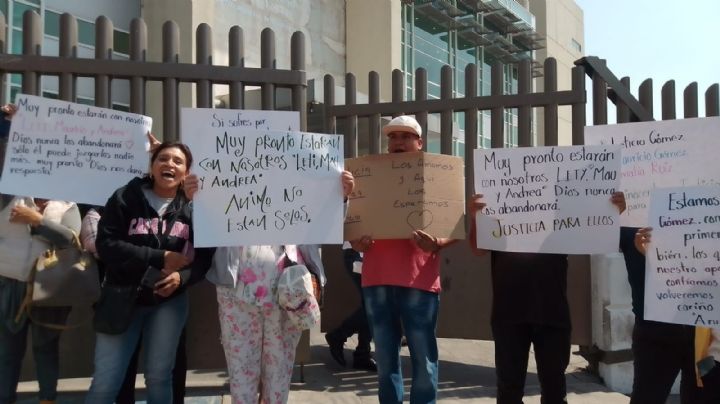 Muy pronto estarán con nosotros
LETY, Mauricio y Andrea"
Dios nunca los abandonará
sólo él puede juzgarlos nadie
más. muy pronto "Dios nos dará
respuesta!
Si sufres por
Muy pronto Estarán
con Nosotros "Leti, Mau
y Andrea"
Animo No
Estan Solos.
Los Amamos
y Aquí
Los
Esperamos
Muy pronto estarán
con nosotros LETY, "Mau
y Andrea" Dios nunca
los abandonará.
JUSTICIA PARA ELLOS
Leticia Gómez
Mauricio Gómez
Ruiz
Estamos
Gómez. con
primer
nuestro apo
volveremos
cariño